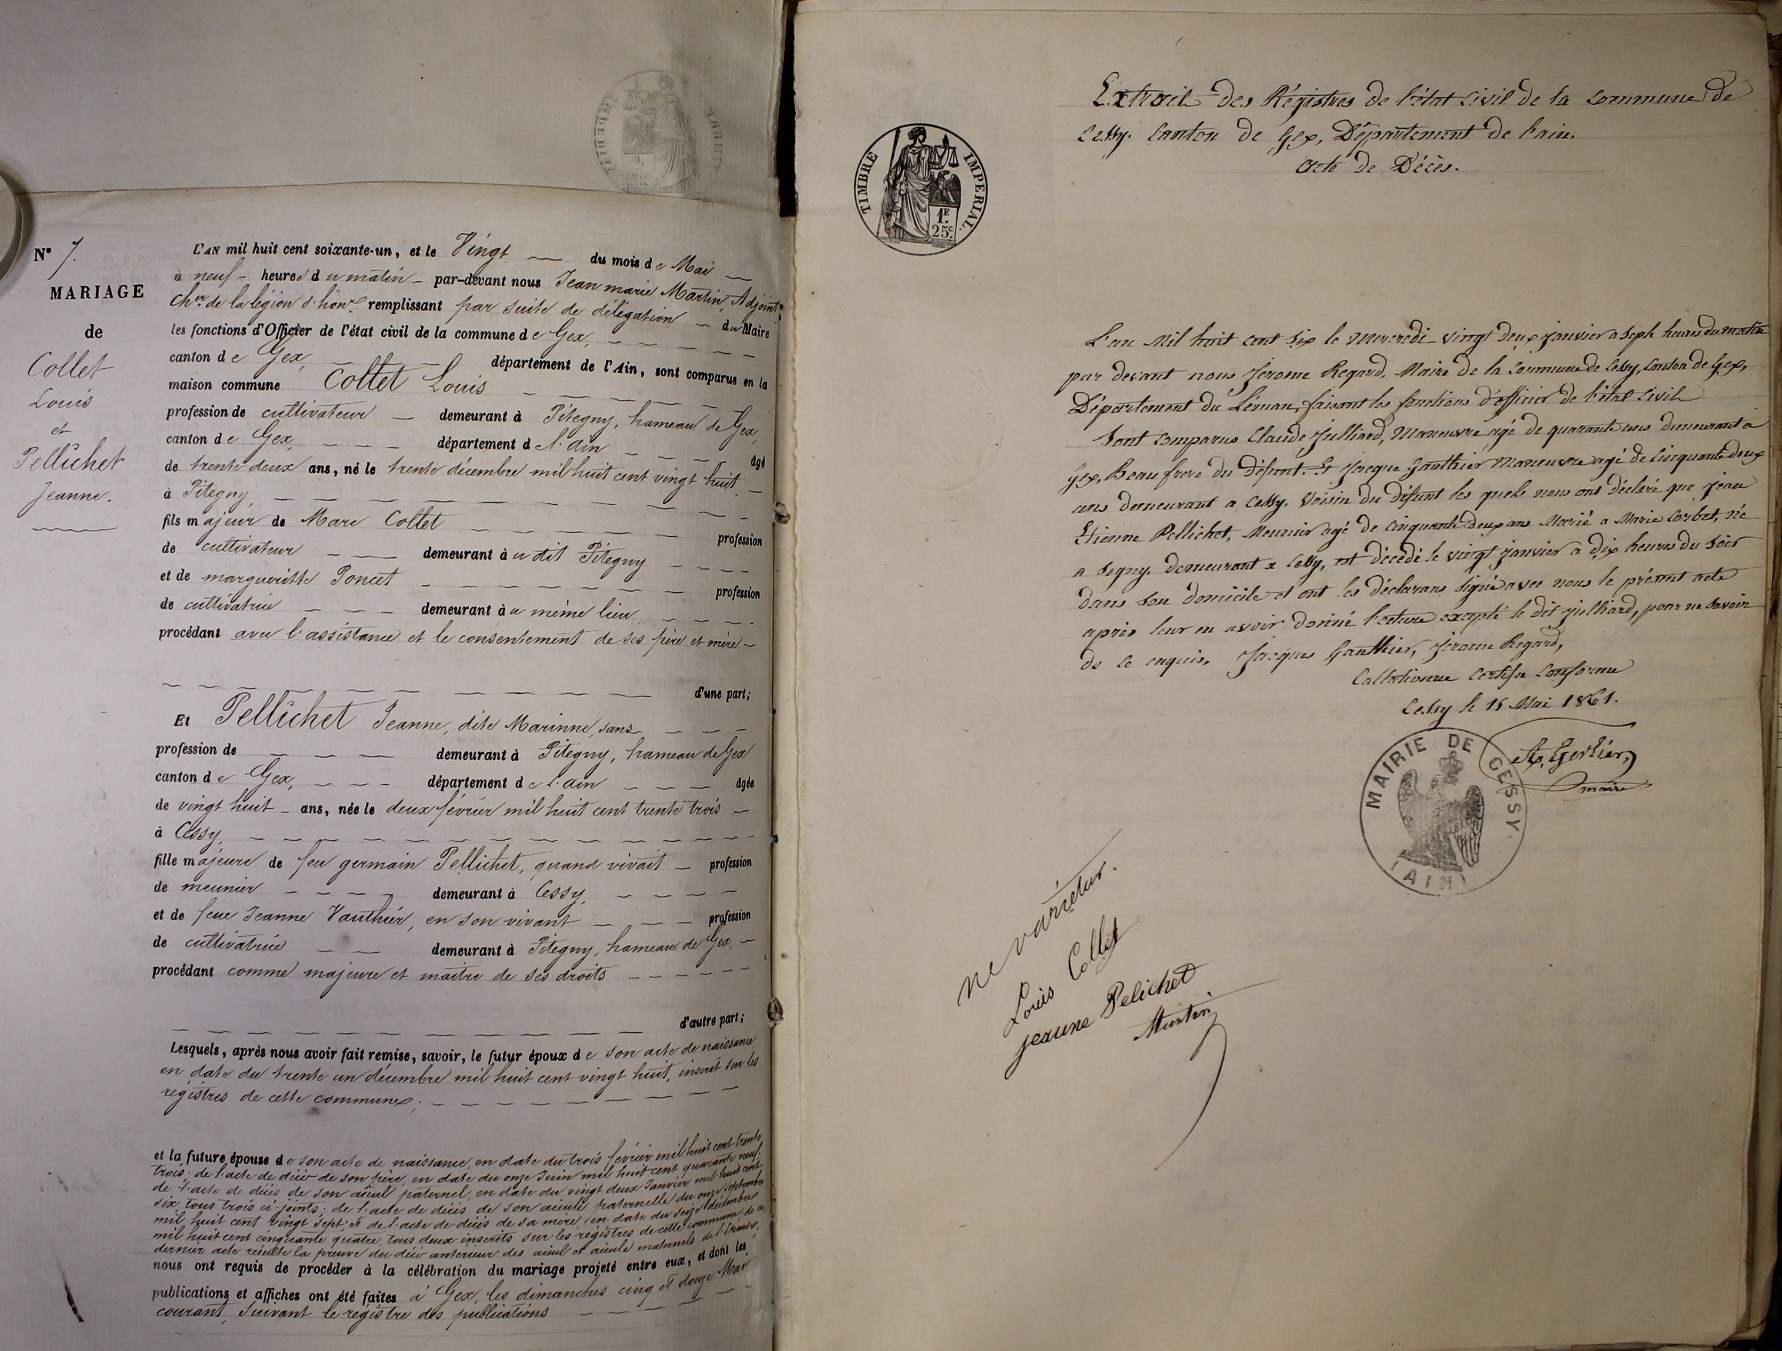 N° 7.
MARIAGE
de
Collet
Louis
et
Pellichet
Jeanne.
L'AN mil huit cent soixante-un, et le Vingt du mois de Mai
à neuf heures du matin par-devant nous Jean marie Martin, Adjoint,
Cher de la légion d'honr remplissant par suite de délégation du Maire
les fonctions d'Officier de l'état civil de la commune de Gex,
canton de Gex, département de l'Ain, sont comparus en la
maison commune Collet Louis
profession de cultivateur demeurant à Pitegny, hameau de Gex,
canton de Gex, département de l'Ain âgé
de trente deux ans, né le trente décembre mil huit cent vingt huit
à Pitegny,
fils majeur de Marc Collet profession
de cultivateur demeurant à u dit Pitegny
et de margueritte Poncet profession
de cultivatrice demeurant à u même lieu
procédant avec l'assistance et le consentement de ses père et mère
d'une part;
Et Pellichet Jeanne, dite Marinne, sans
profession de demeurant à Pitegny, hameau de Gex
canton de Gex, département de l'ain âgée
de vingt huit ans, née le deux février mil huit cent trente trois
à Cessy,
fille majeure de feu germain Pellichet, quand vivait profession
de meunier demeurant à Cessy,
et de feue Jeanne Vauthier, en son vivant profession
de cultivatrice demeurant à Pitegny, hameau de Gex,
procédant comme majeure et maitre de ses droits
d'autre part;
Lesquels, après nous avoir fait remise, savoir, le futur époux de son acte de naissance
en date du trente un décembre mil huit cent vingt huit, inscrit sur les
régistres de cette commune;
et la future épouse de son acte de naissance, en date du trois février mil huit cent trente
trois; de l'acte de décès de son père, en date du onze Juin mil huit cent quarante neuf;
de l'acte de décès de son aïeul paternel, en date du vingt deux Janvier mil huit cent
six, tous trois ci-joints; de l'acte de décès de son aïeule paternelle du onze septembre
mil huit cent vingt sept; et de l'acte de décès de sa mère, en date du seize décembre
mil huit cent cinquante quatre, tous deux inscrits sur les régistres de cette commune de ce
dernier acte résulte la preuve du décès antérieur des aïeul et aïeule maternels de l'épouse;
nous ont requis de procéder à la célébration du mariage projeté entre eux, et dont les
publications et affiches ont été faites à Gex, les dimanches cinq et douze Mai
courant, suivant le régistre des publications
TIMBRE IMPERIAL.
1F.
25c.
Extrait des Régistres de l'état Civil de la Commune de
Cessy. Canton de Gex, Département de l'ain.
Acte de Décès.
L'an Mil huit cent Six le Mercredi vingt deux janvier a Sept heures du matin
par devant nous Jérome Regard, Maire de la Commune de Cessy, Canton de Gex,
Département du Léman, faisant les fonctions d'officier de l'état Civil
Sont Comparus Claude Julliard, Maneuvre agé de quarante ans demeurant a
Gex, Beaufrere du défunt. Et Jacque Gauthier Maneuvre agé de Cinquante deux
ans demeurant a Cessy. Voisin du défunt les quels nous ont déclaré que Jean
Etienne Pellichet, Meunier agé de Cinquante deux ans Marié a Marie Corbet, né
a Segny, demeurant a Cessy, est décédé le vingt janvier a dix heures du Soir
dans Son domicile et ont les déclarans Signé avec nous le présent acte
après leur en avoir donné lecture excepté le dit Julliard, pour ne Savoir
de ce enquis. Jacques Gauthier, Jérome Regard,
Collationné Certifié Conforme
Cessy le 15 Mai 1861.
Gerlier
maire
MAIRIE DE CESSY.
(AIN)
ne varietur.
Louis Collet
jeanne Pelichet
Martin